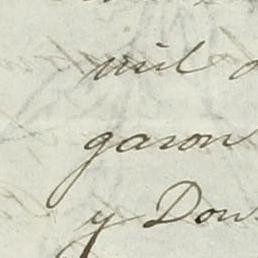 mil
garon
y Don